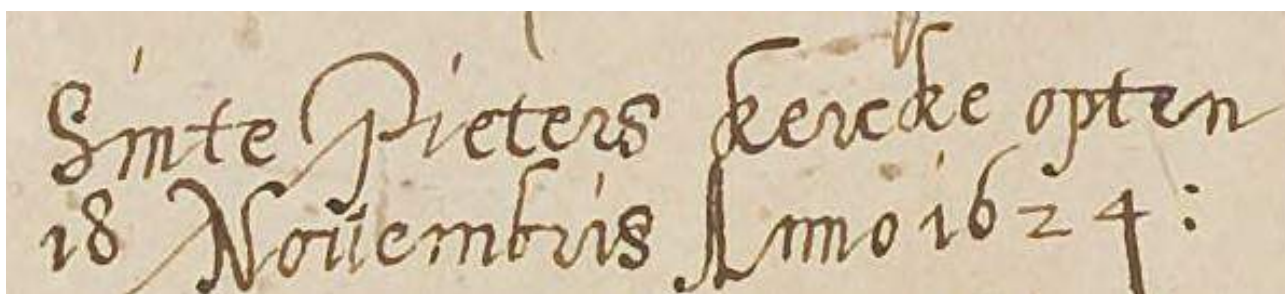 Sinte Pieters kercke opten
18 Nouembris Anno 1624: